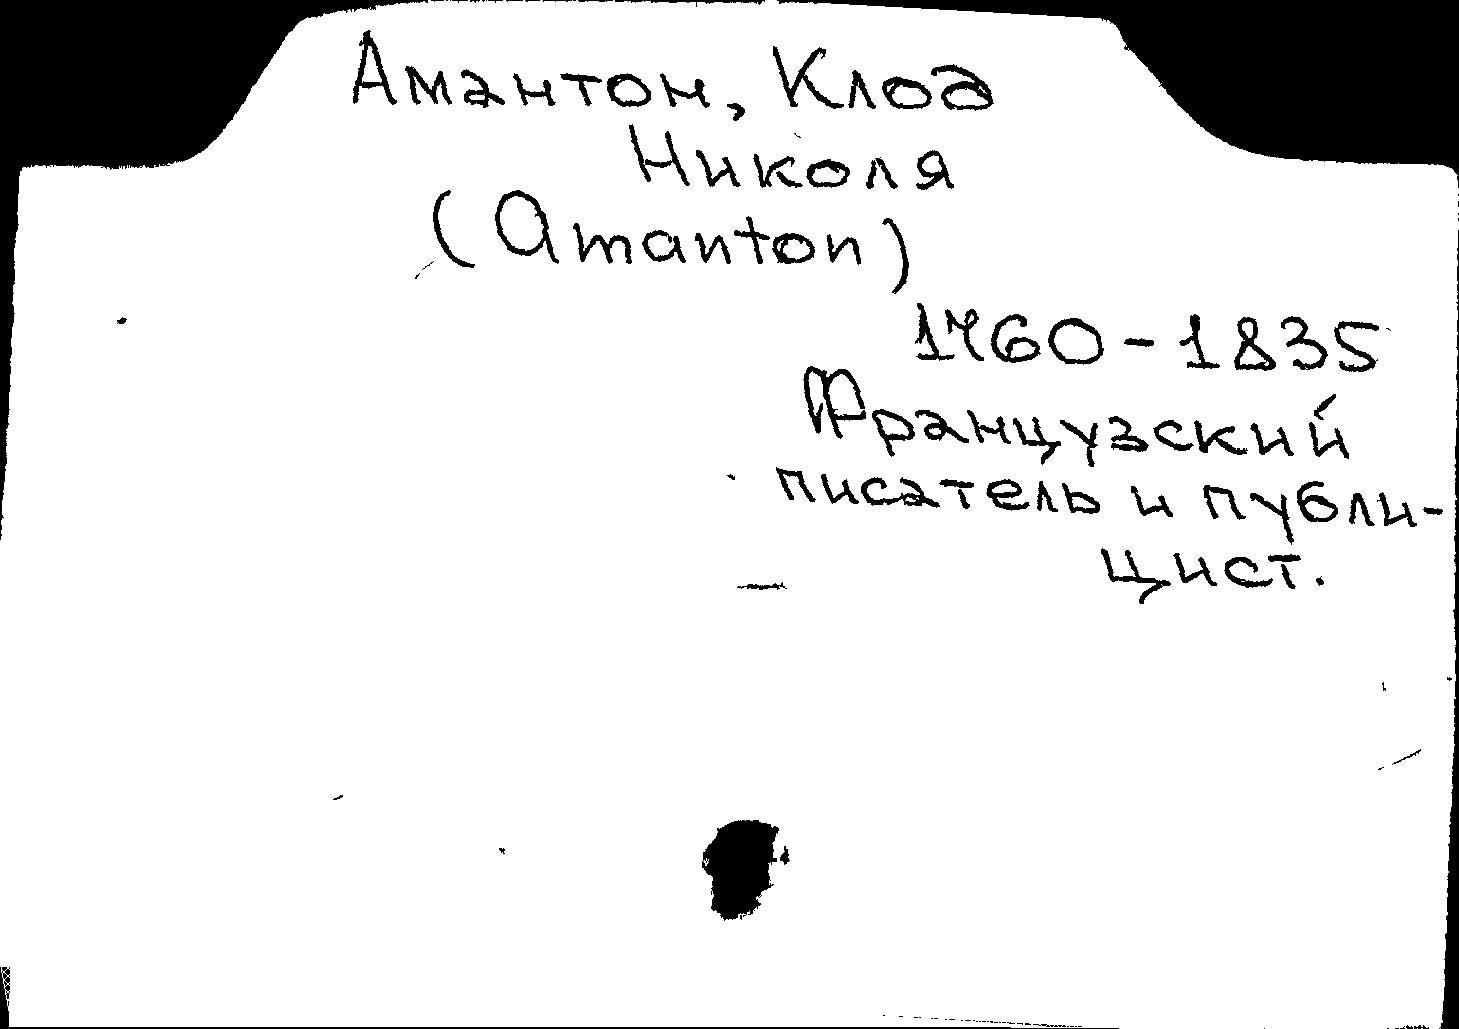 Амантон, Клод
Николя
(Amanton)
1760-1835
Французский
писатель и публи-
цист.